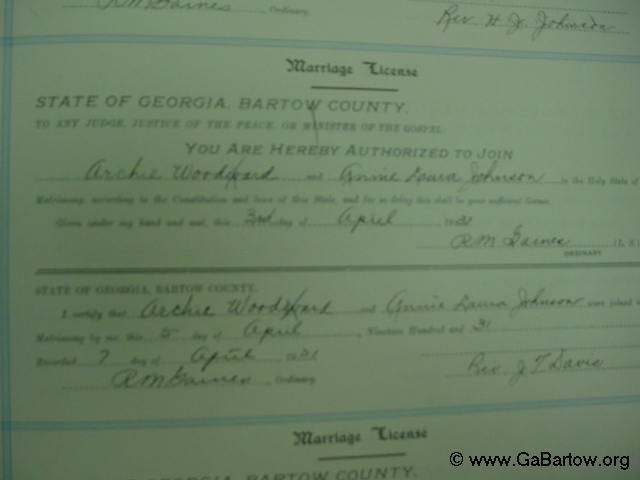 RM Gaines, Ordinary.
Rev. H. J. Johnson
Marriage License
STATE OF GEORGIA, BARTOW COUNTY.
TO ANY JUDGE, JUSTICE OF THE PEACE, OR MINISTER OF THE GOSPEL:
YOU ARE HEREBY AUTHORIZED TO JOIN
Archie Woodward and Annie Laura Johnson in the Holy State of
Matrimony, according to the Constitution and laws of this State, and for so doing this shall be your sufficient license.
Given under my hand and seal, this 3rd day of April 1931
RM Gaines (L. S.
ORDINARY
STATE OF GEORGIA, BARTOW COUNTY.
I certify that Archie Woodward and Annie Laura Johnson were joined
Matrimony by me, this 5 day of April, Nineteen Hundred and 31
Recorded 7 day of April 1931
Rev. J T Davis
RM Gaines, Ordinary.
Marriage License
STATE OF GEORGIA, BARTOW COUNTY.
© www.GaBartow.org